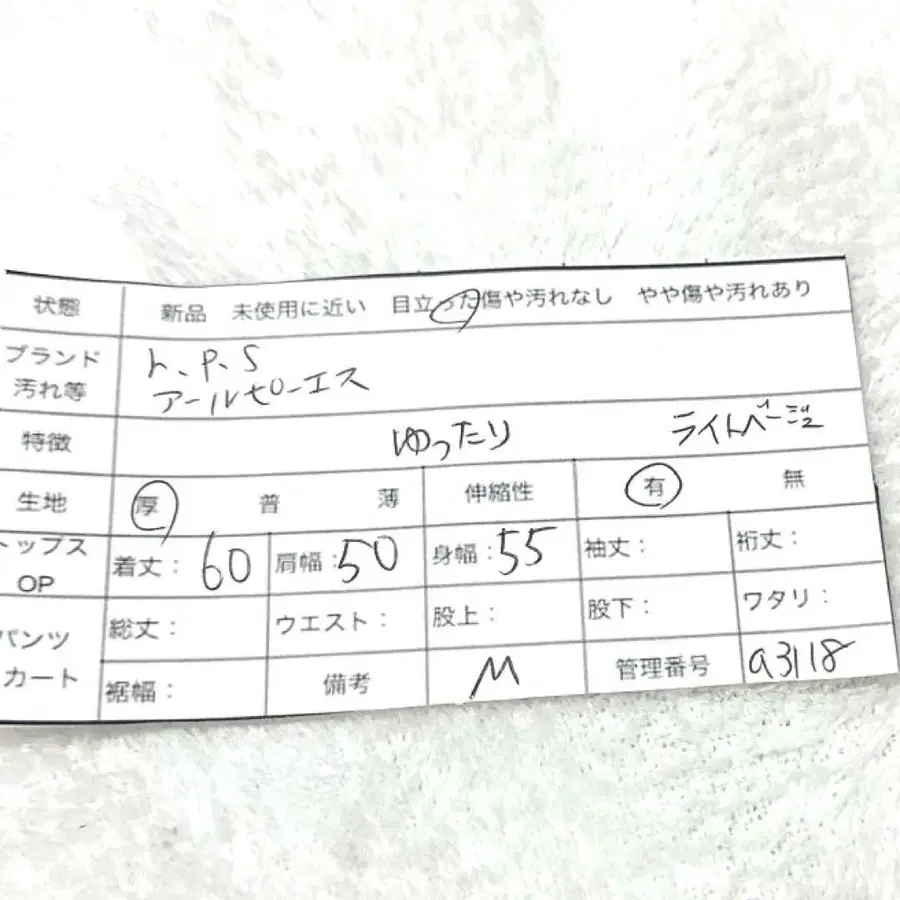 状態 新品 未使用に近い 目立った傷や汚れなし やや傷や汚れあり
ブランド r.p.s
汚れ等 アールピーエス
特徴 ゆったり ライトベージュ
生地 厚 普 薄 伸縮性 有 無
トップス 着丈: 60 肩幅: 50 身幅: 55 袖丈: 裄丈:
OP
パンツ 総丈: ウエスト: 股上: 股下: ワタリ:
カート 裾幅: 備考 M 管理番号 a3118